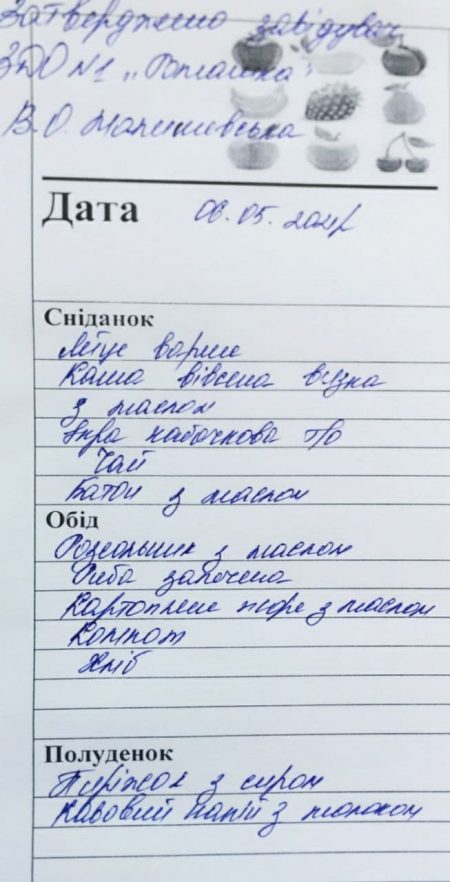 Затверджено завідувач
ЗДО №1 „Ромашка"
В.О. Малишевська
Дата 06.05.2024
Сніданок
Яйце варене
Каша вівсяна в'язка
з маслом
Ікра кабачкова п/о
Чай
Батон з маслом
Обід
Розсольник з маслом
Риба запечена
Картопляне пюре з маслом
Компот
Хліб
Полуденок
Пиріжок з сиром
Кавовий напій з молоком